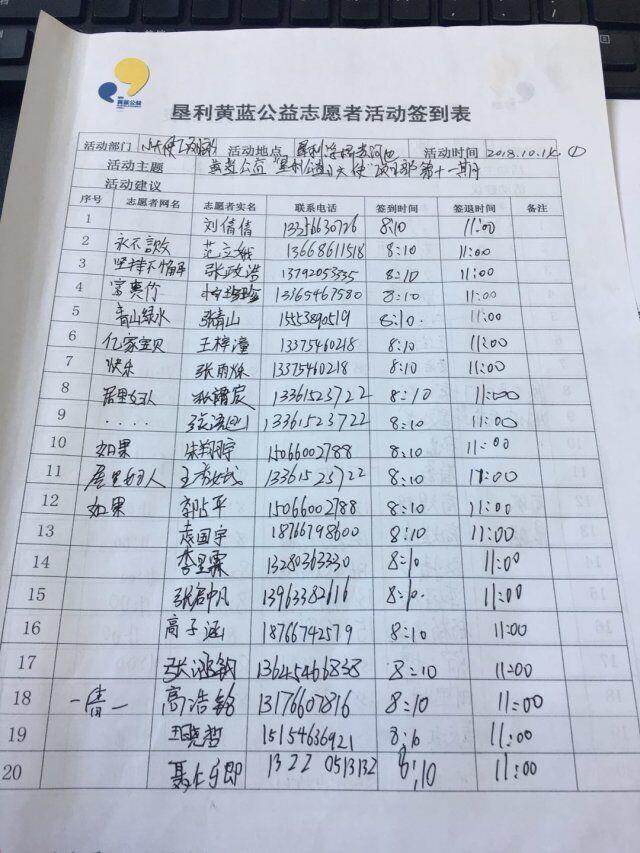 黄蓝公益
垦利黄蓝公益志愿者活动签到表
活动部门 活动地点 垦利 活动时间 2018.10.14 ①
活动主题 黄蓝公益"垦利公益小天使"项目部第十一期
活动建议
序号 志愿者网名 志愿者实名 联系电话 签到时间 签退时间 备注
1 刘倩倩 13256630726 8:10 11:00
2 永不言败 范立娥 13668611518 8:10 11:00
3 坚持不懈 张政浩 13792053335 8:10 11:00
4 13165467580 8:10 11:00
5 青山绿水 张青山 1553890519 8:10. 11:00
6 亿家宝贝 王梓潼 13375460218 8:10 11:00
7 快乐 张雨烁 13375460218 8:10 11:00
8 居里女人 13361523722 8:10 11:00
9 .... 13361523722 8:10 11:00
10 如果 朱翔宇 15066002788 8:10 11:00
11 居里女人 13361523722 8:10 11:00
12 如果 李占平 15066002788 8:10 11:00
13 袁国宇 18766798600 8:10 11:00
14 李昱霖 13280363330 8:10 11:00
15 13963382616 8:10. 11:00
16 高子涵 18766742579 8:10 11:00
17 13645466838 8:10 11:00
18 高浩铭 13176607816 8:10 11:00
19 王晓哲 15154636921 8:10 11:00
20 1322 0513132 8:10 11:00